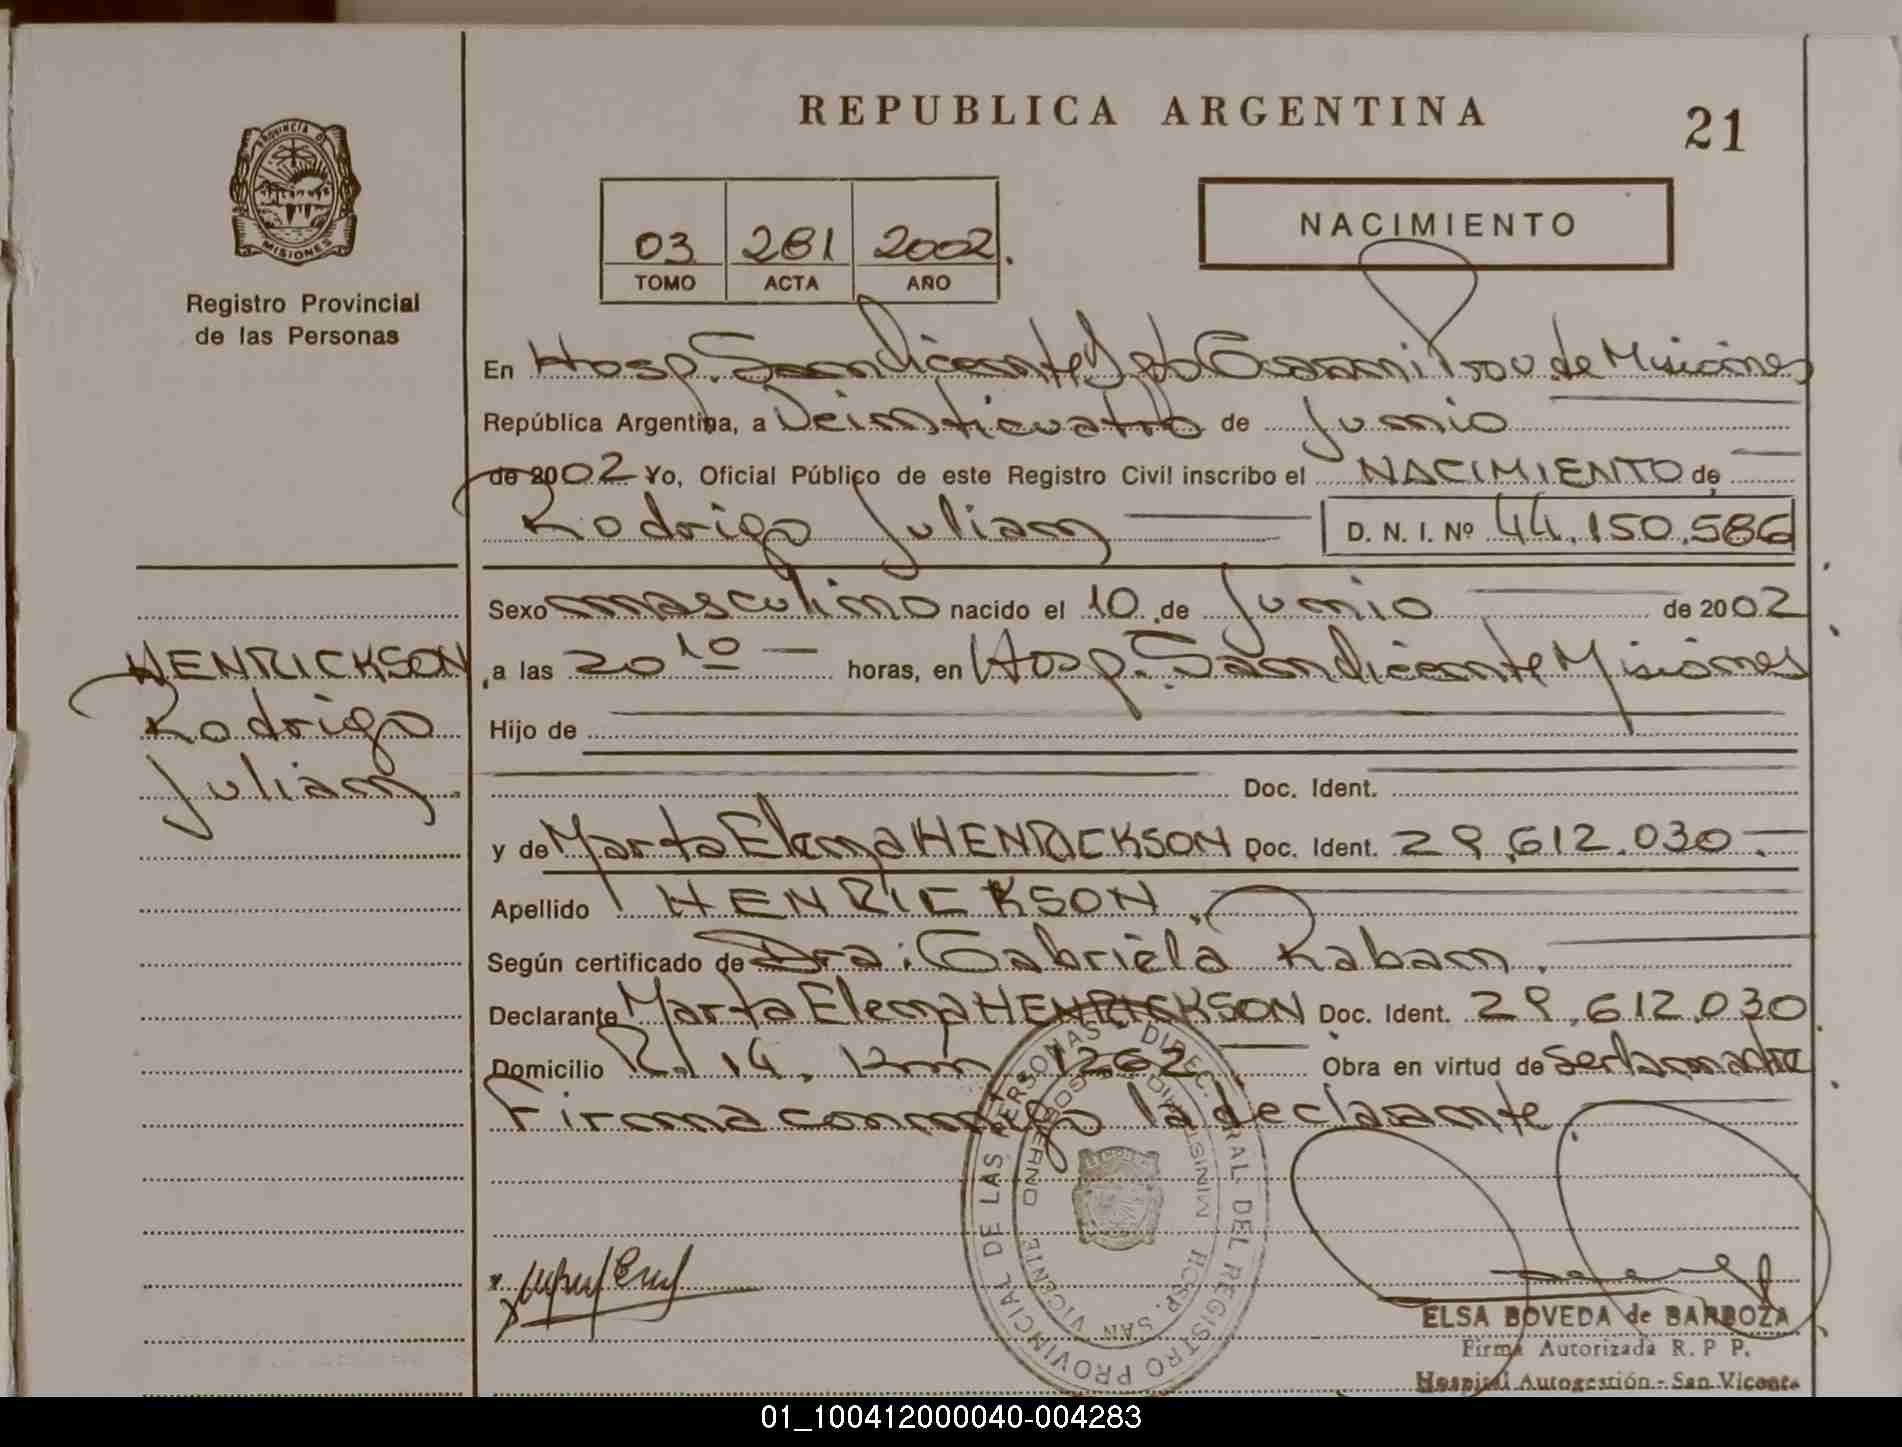 REPUBLICA ARGENTINA
21
PROVINCIA DE
MISIONES
Registro Provincial
de las Personas
03 281 2002.
TOMO ACTA AÑO
NACIMIENTO
En Hosp. San Vicente Dpto Guarani Prov. de Misiones
República Argentina, a Veinticuatro de Junio
de 2002 Yo, Oficial Público de este Registro Civil inscribo el NACIMIENTO de
Rodrigo Julian D. N. I. Nº 44.150.586
Sexo masculino nacido el 10 de Junio de 2002
a las 20 10 horas, en Hosp. San Vicente Misiones
Hijo de
Doc. Ident.
y de Marta Elena HENRICKSON Doc. Ident. 29.612.030.
Apellido HENRICKSON.
Según certificado de Dra: Gabriela Raban.
Declarante Marta Elena HENRICKSON Doc. Ident. 29.612.030
Domicilio R. 14. Km 1262. Obra en virtud de ser la madre
Firma conmigo la declarante.
HENRICKSON
Rodrigo
Julian.
DIREC. GRAL. DEL REGISTRO PROVINCIAL DE LAS PERSONAS
MINISTERIO DE GOBIERNO
HOSP. SAN VICENTE
ELSA BOVEDA de BARBOZA
Firma Autorizada R. P P.
Hospital Autogestión - San Vicente
01_100412000040-004283